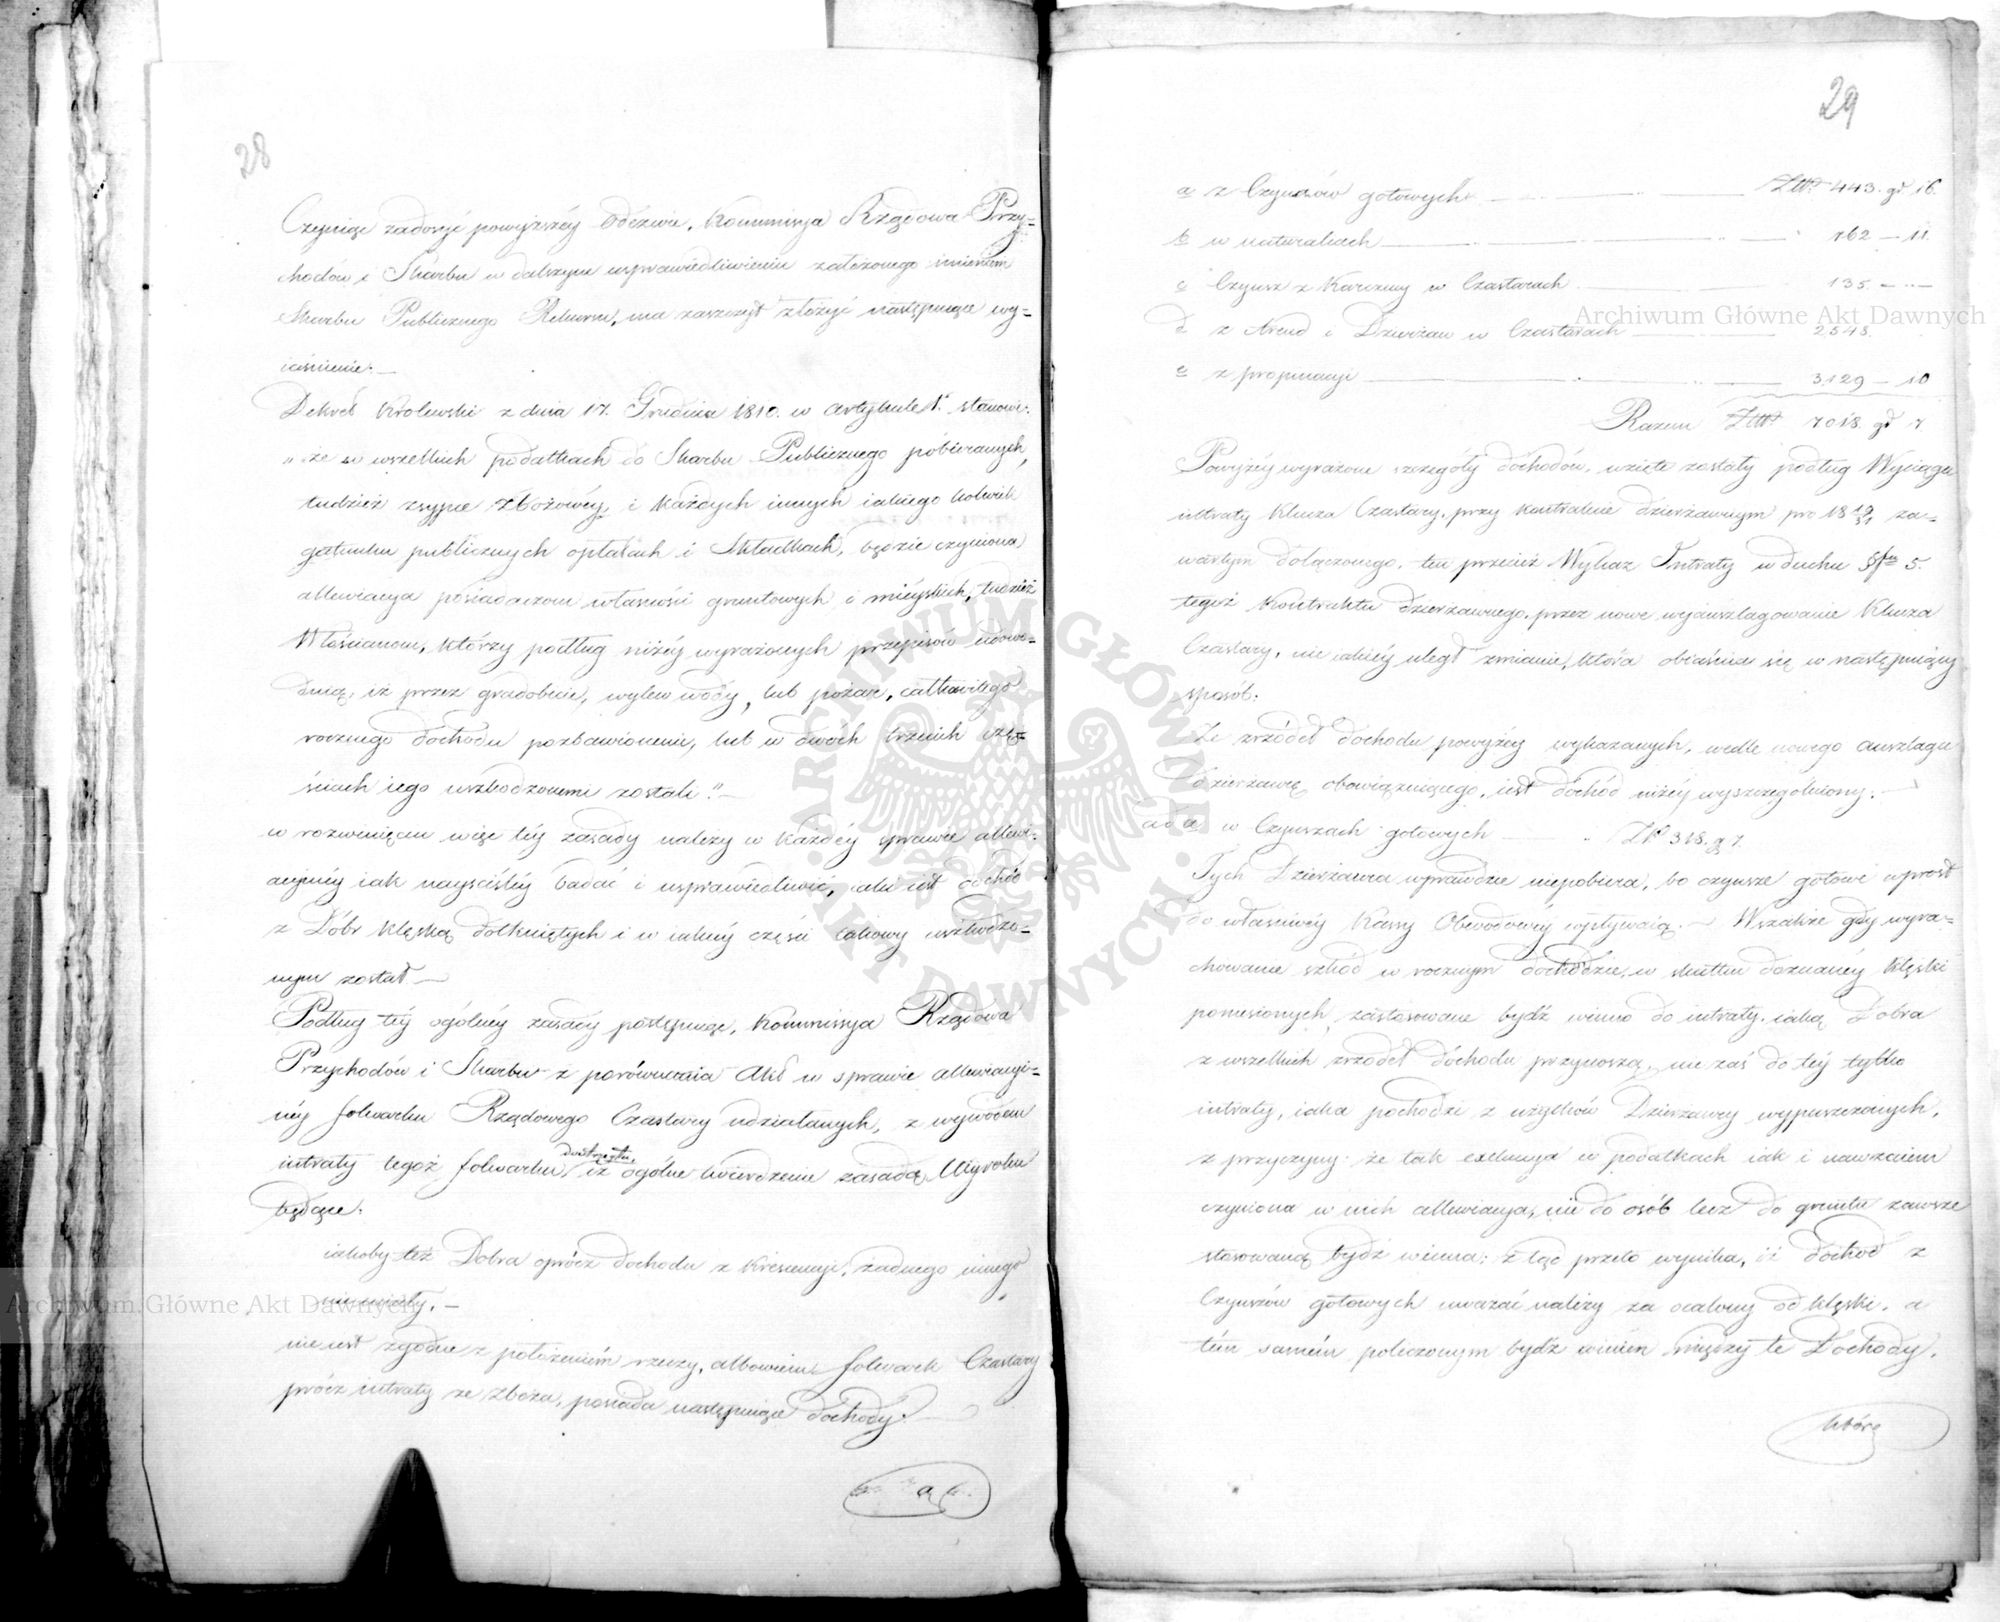 28
Czyniąc zadosyć powyższéy Odezwie, Kommissya Rządowa Przy=
chodów i Skarbu w dalszym usprawiedliwieniu założonego imieniem
Skarbu Publicznego Rekursu, ma zaszczyt złożyć następuiące wy=
iaśnienie. —
Dekret Królewski z dnia 17. Grudnia 1810. w artykule 1. stanowi.
„że w wszelkich podatkach do Skarbu Publicznego pobieranych,
tudzież zsypce zbożowéy, i każdych innych iakiego kolwiek
gatunku publicznych opłatach i składkach, będzie czyniona
allewiacya posiadaczom własności gruntowych i mieyskich, tudzież
Włościanom, którzy podług niżéy wyrażonych przepisów udowo=
dnią, iż przez gradobicie, wylew wody, lub pożar, całkowitego
rocznego dochodu pozbawionemi, lub w dwóch trzecich czę=
ściach iego uszkodzonemi zostali." —
w rozwinięciu więc téy zasady należy w każdéy sprawie allewi=
acyinéy iak nayściśléy badać i usprawiedliwić, iaki iest dochód
z Dóbr klęską dotkniętych i w iakiéy części takowy uszkodzo=
nym został. —
Podług téy ogólnéy zasady postępuiąc, Kommissya Rządowa
Przychodów i Skarbu z porównania Akt w sprawie allewiacyi=
néy folwarku Rządowego Czastary udziałanych, z wywodem
intraty tegoż folwarku, dostrzegła, iż ogólne twierdzenie zasadą Wyroku
będące.
iakoby też Dobra oprócz dochodu z krescencyi, żadnego innego
nie miały. —
nie iest zgodne z położeniem rzeczy, albowiem folwark Czastary
prócz intraty ze zboża, posiada następuiące dochody. —
29
a z Czynszów gotowych — Złtp. 443. gr 16.
b w naturaliach — 762 — 11.
c Czynsz z Karczmy w Czastarach — 135. —
d z Arend i Dzierżaw w Czastarach — 2548.
e z propinacyi — 3129 — 10
Razem Złtp. 7018. gr 7
Powyżéy wyrażone szczegóły dochodów, wzięte zostały podług Wyciągu
intraty Klucza Czastary, przy kontrakcie dzierżawnym pro 18 19/31 za=
wartym dołączonego, ten przecież Wykaz Intraty w duchu §fu 5.
tegoż Kontraktu dzierżawnego, przez nowe wyanszlagowanie Klucza
Czastary, nie iakiéy uległ zmianie, która obiaśnia się w następuiący
sposób.
Ze zrzódeł dochodu powyżéy wykazanych, wedle nowego anszlagu
dzierżawcę obowiązuiącego, iest dochód niżéy wyszczególniony. —
ad a, w Czynszach gotowych — Złp 318. gr 7.
Tych Dzierżawca wprawdzie niepobiera, bo czynsze gotowe wprost
do właściwéy Kassy Obwodowéy wpływaią. — Wszakże gdy wyra=
chowanie szkód w rocznym dochodzie, w skutku doznanéy klęski
poniesionych, zastosowane bydź winno do intraty, iaką Dobra
z wszelkich zrzódeł dochodu przynoszą, nie zaś do téy tylko
intraty, iaka pochodzi z użytków Dzierżawcy wypuszczonych,
z przyczyny: że tak exekucya w podatkach iak i nawzaiem
czyniona w nich allewiacya, nie do osób lecz do gruntu zawsze
stosowaną bydź winna; z tąd przeto wynika, iż dochód z
Czynszów gotowych uważać należy za ocalony od klęski, a
tém samém policzonym bydź winien między te Dochody.
które
Archiwum Główne Akt Dawnych
Archiwum Główne Akt Dawnych
ARCHIWUM GŁÓWNE AKT DAWNYCH